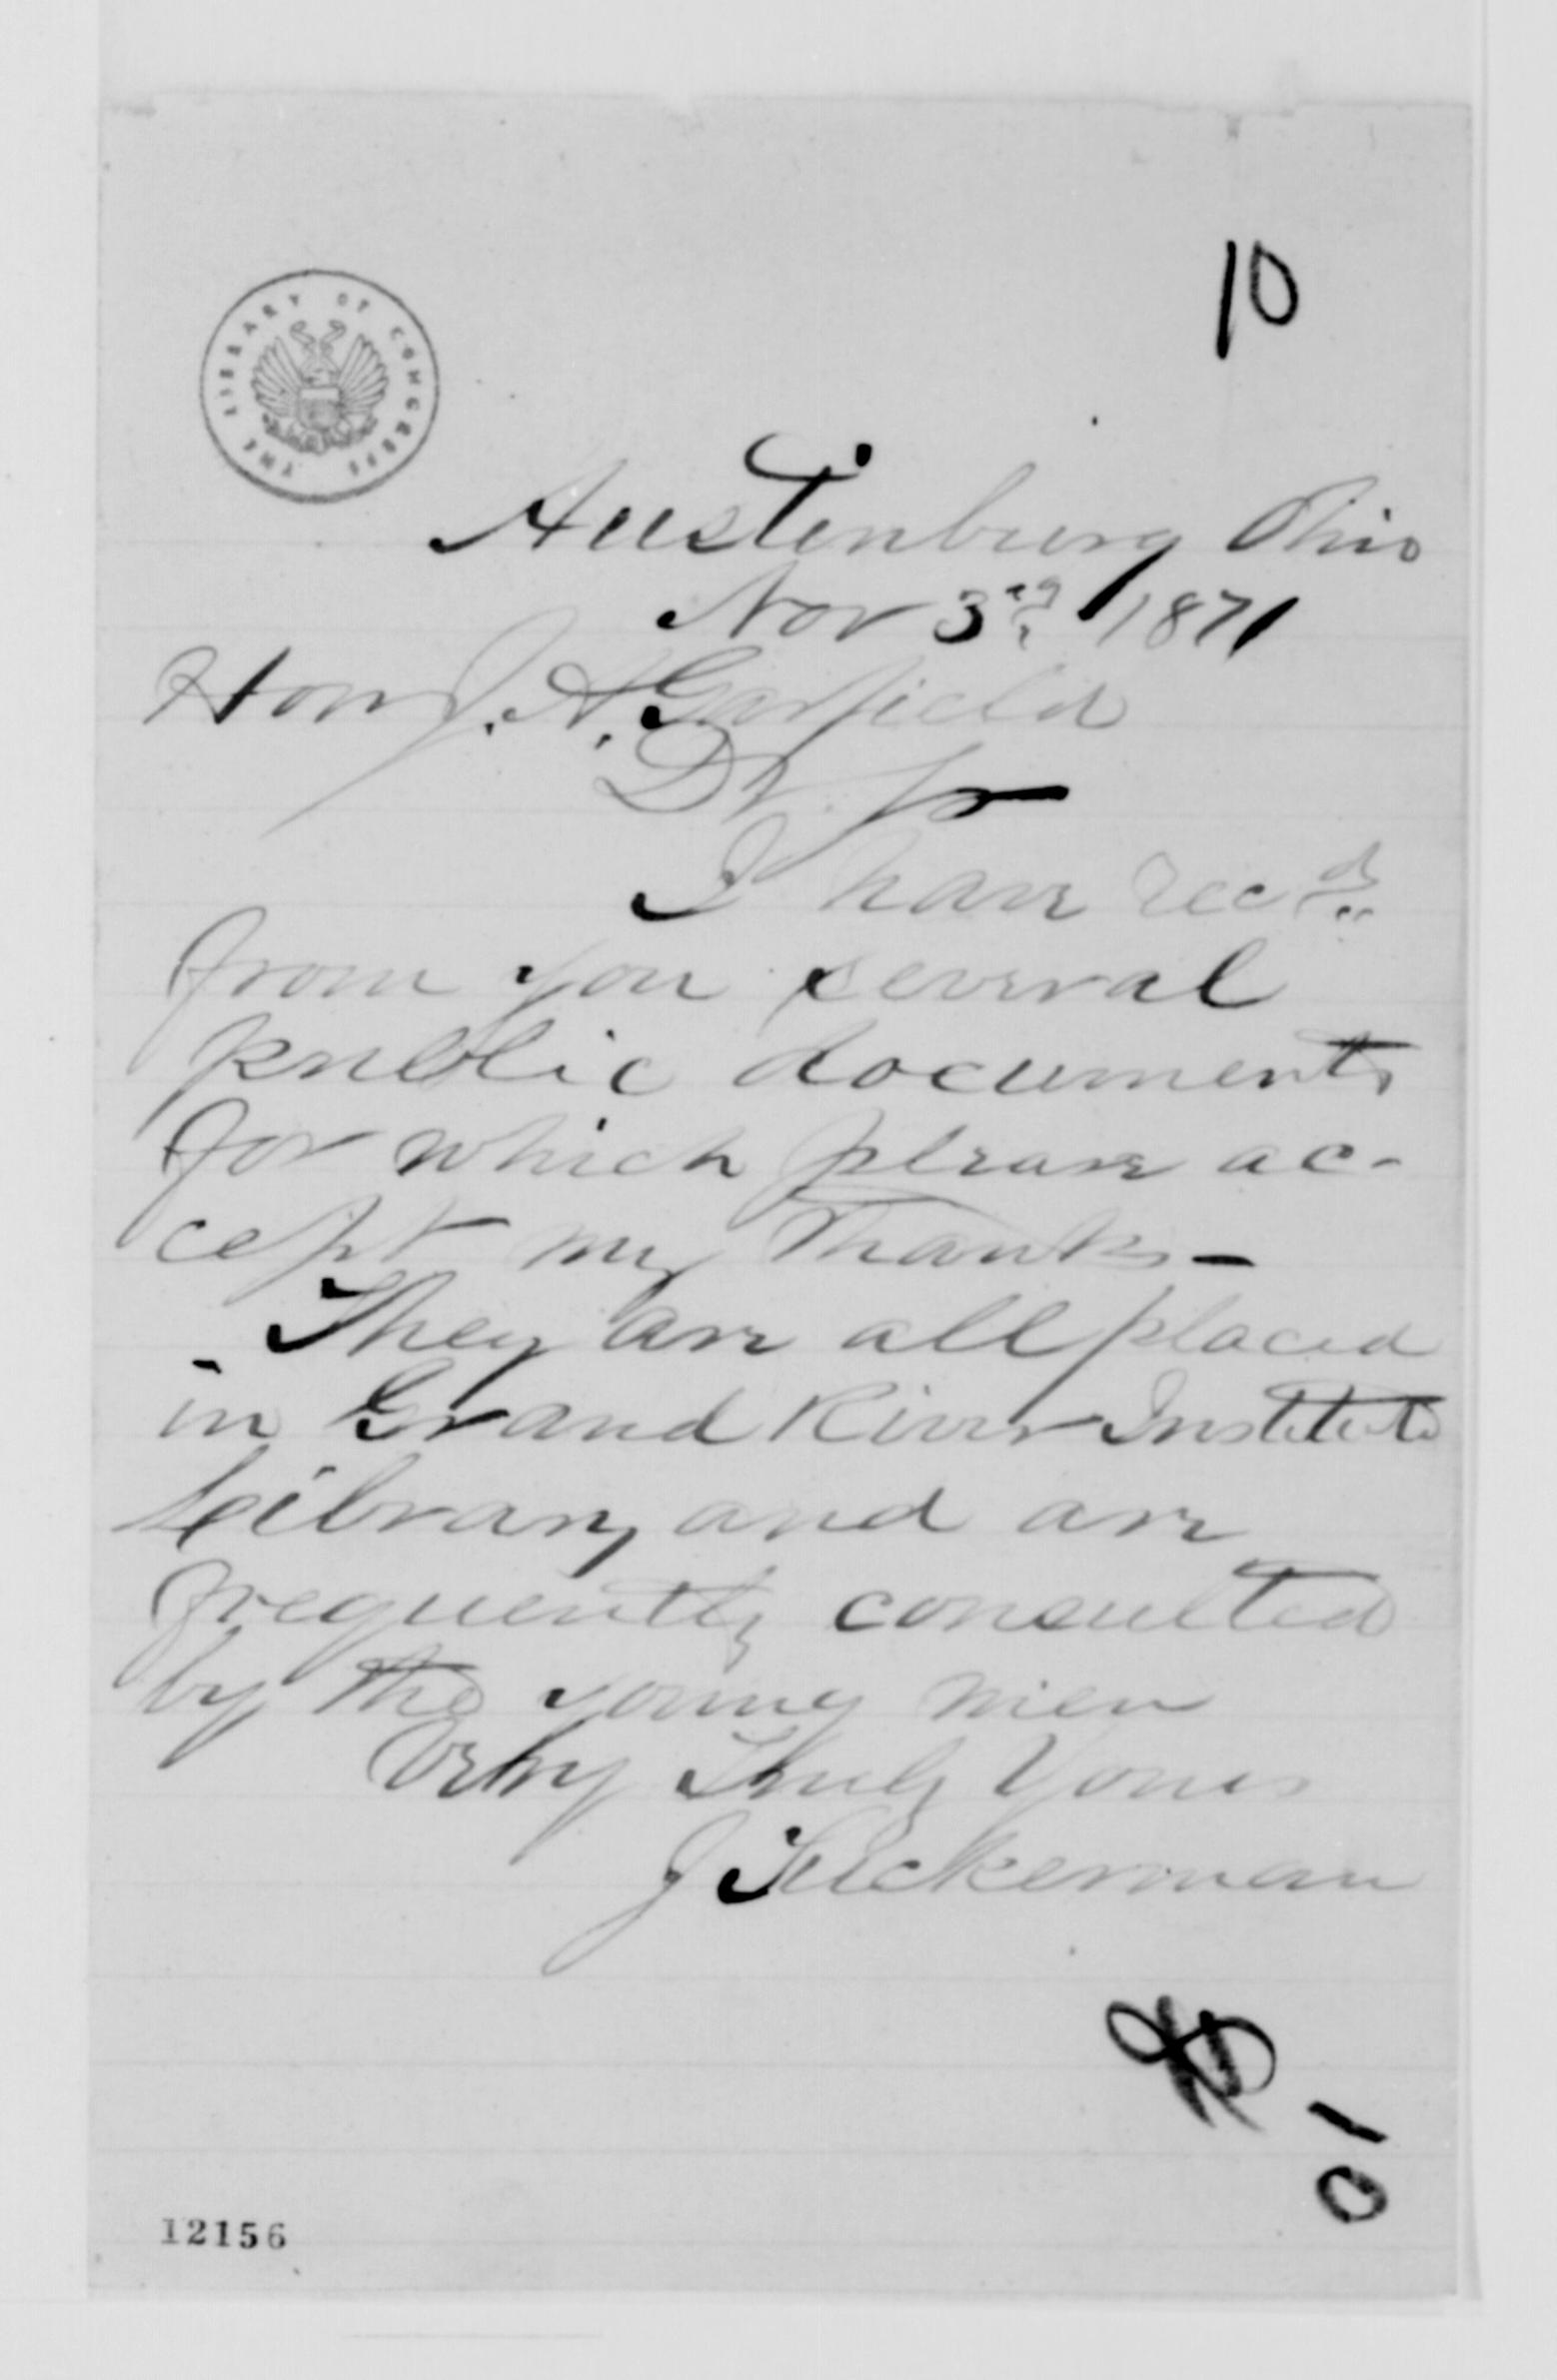 10
THE LIBRARY OF CONGRESS
Austinburg Ohio
Nov 3rd 1871
Hon J. A. Garfield
Dr Sr
I have recd
from you several
public documents
for which please ac-
cept my thanks -
They are all placed
in Grand River Institute
Library and are
frequently consulted
by the young men
Very Truly Yours
J Tuckerman
10
12156